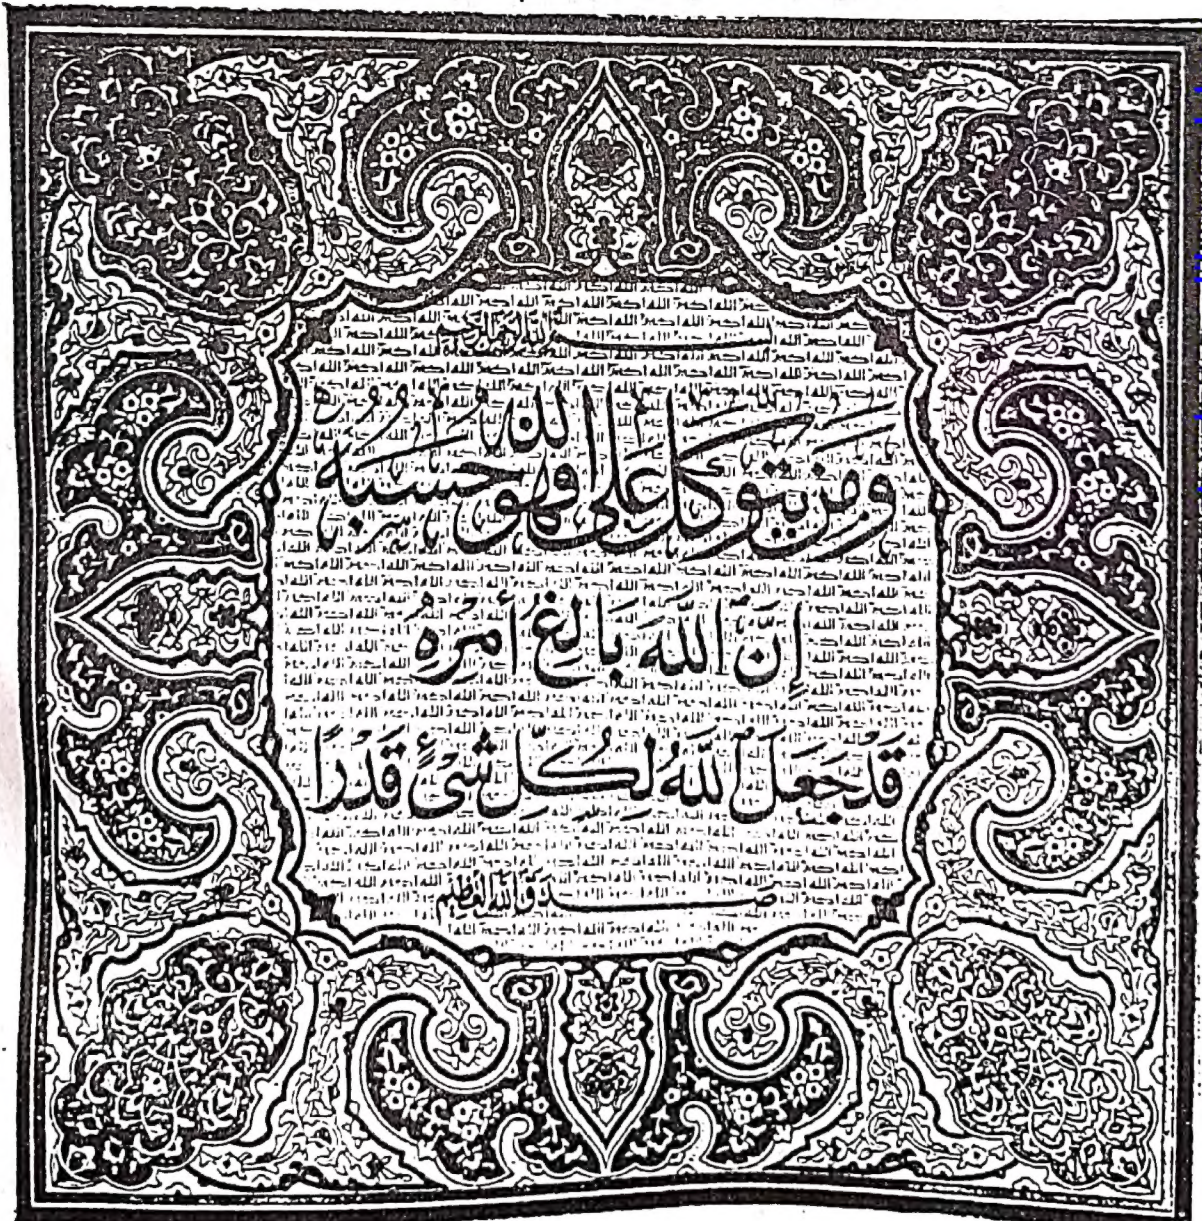 بسم الله الرحمن الرحيم
ومن يتوكل على الله فهو حسبه
إِنَّ اللَّهَ بَالِغُ أَمْرِهِ
قَدْ جَعَلَ اللَّهُ لِكُلِّ شَيْءٍ قَدْرًا
صدق الله العظيم